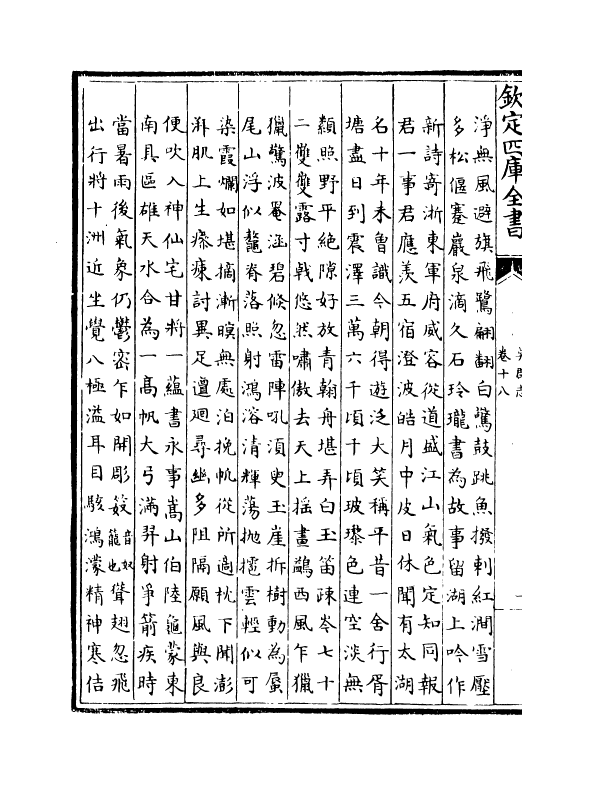 欽定四庫全書
卷十八
淨無風避旗飛鷺翩翻白驚鼓跳魚撥剌紅澗雪壓
多松偃蹇巖泉滴久石玲瓏書為故事留湖上吟作
新詩寄浙東軍府威容從道盛江山氣色定知同報
君一事君應羨五宿澄波皓月中皮日休聞有太湖
名十年未曾識今朝得遊泛大笑稱平昔一舍行胥
塘盡日到震澤三萬六千頃千頃玻瓈色連空淡無
纇照野平絶隙好放青翰舟堪弄白玉笛疎岑七十
二雙雙露寸戟悠然嘯傲去天上揺畫鷁西風乍獵
獵驚波罨涵碧倐忽雷陣吼須臾玉崖拆樹動為蜃
尾山浮似鼇脊落照射鴻溶清輝蕩抛雲輕似可
染霞爛如堪摘漸暝無處泊挽帆從所適枕下聞澎
湃肌上生瘮㾕討異足邅迴尋幽多阻隔願風與良
便吹入神仙宅甘將一蘊書永事嵩山伯陸龜蒙東
南具區雄天水合為一髙帆大弓滿羿射爭箭疾時
當暑雨後氣象仍鬱密乍如開彫笯音奴籠也聳翅忽飛
出行將十洲近坐覺八極溢耳目駭鴻濛精神寒佶